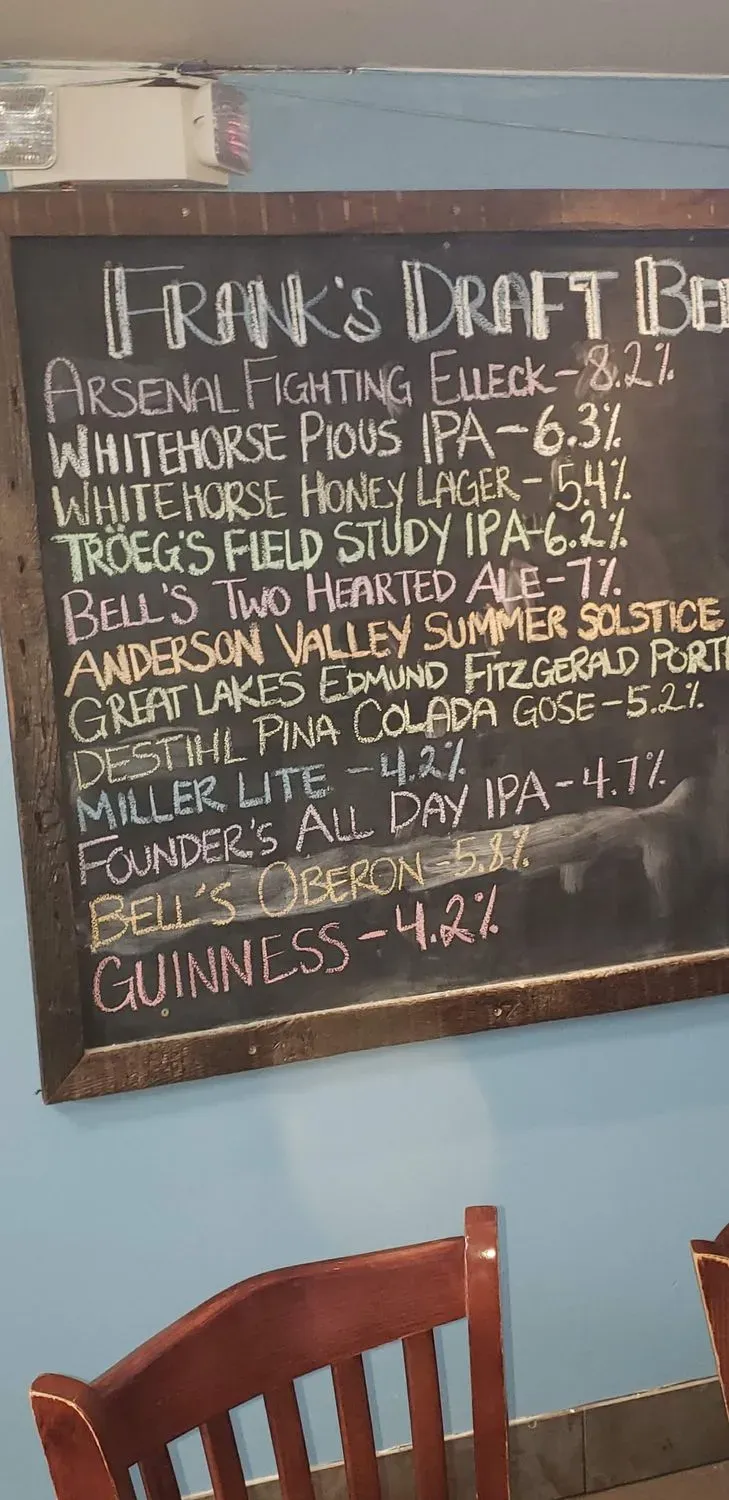 FRANK'S DRAFT BE
ARSENAL FIGHTING ELLECK-8.2%
WHITEHORSE PIOUS IPA-6.3%
WHITEHORSE HONEY LAGER-5.4%
TRÖEG'S FIELD STUDY IPA-6.2%
BELL'S TWO HEARTED ALE-7%
ANDERSON VALLEY SUMMER SOLSTICE
GREAT LAKES EDMUND FITZGERALD PORT
DESTIHL PINA COLADA GOSE-5.2%
MILLER LITE -4.2%
FOUNDER'S ALL DAY IPA-4.7%
BELL'S OBERON-5.8%
GUINNESS-4.2%